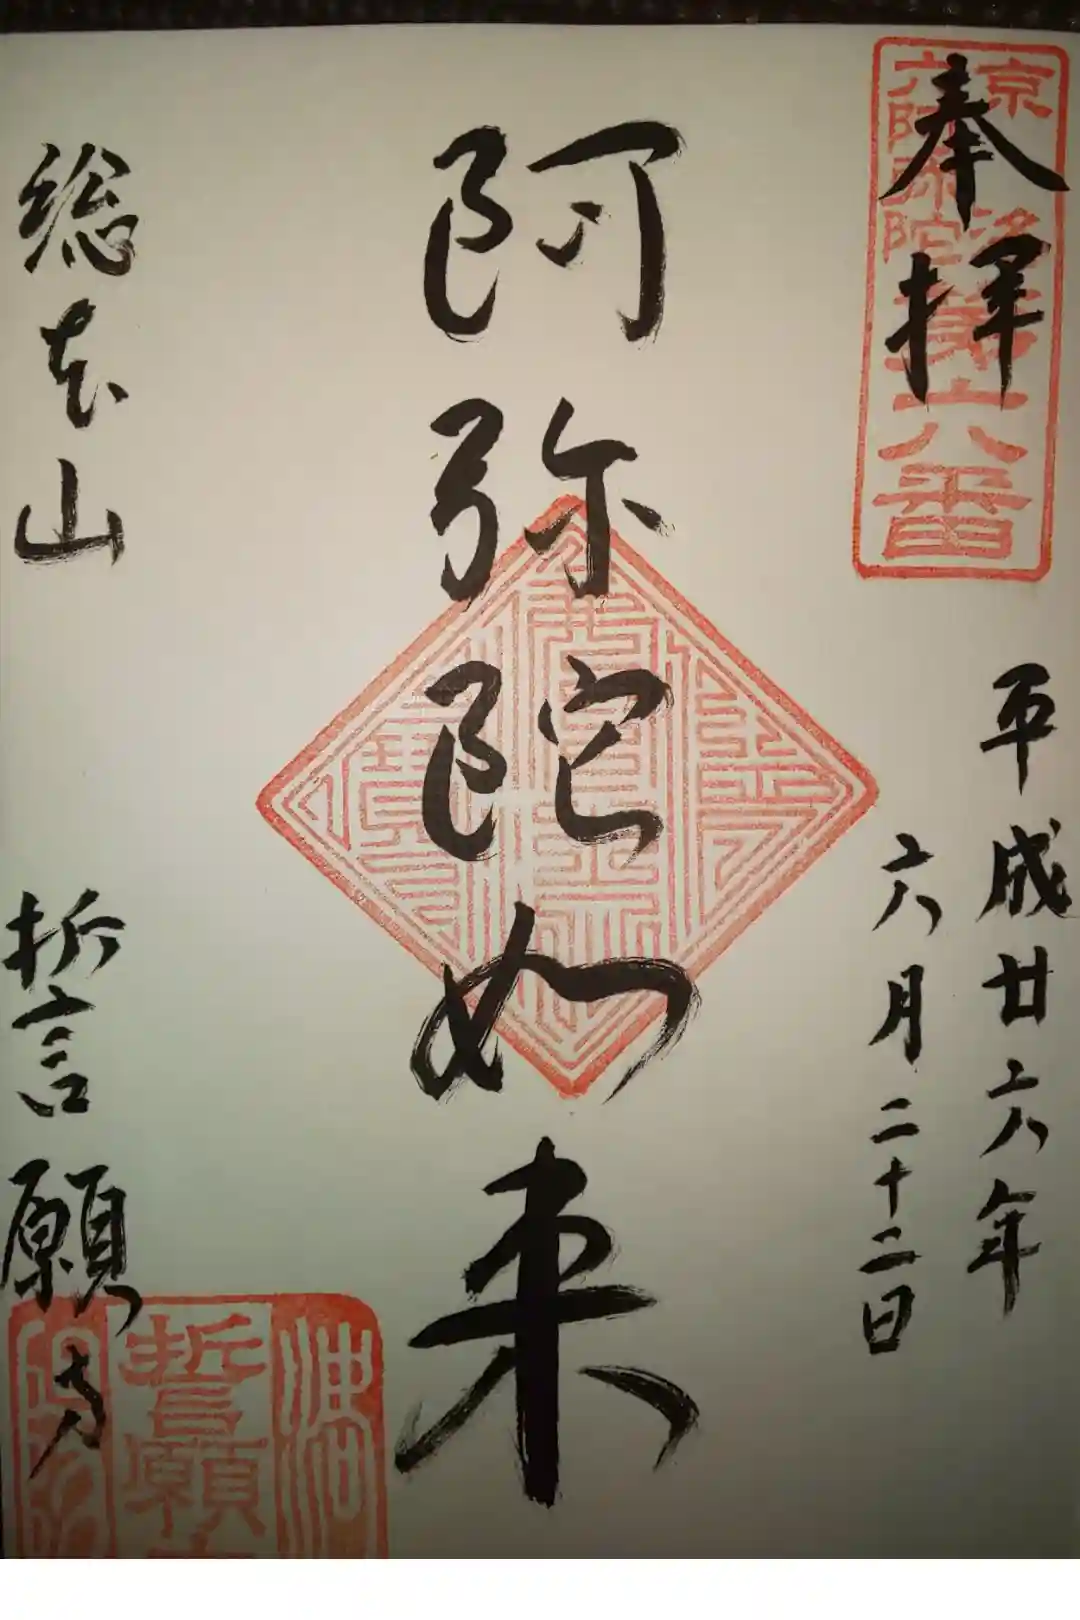 奉拝
平成廿六年
六月二十二日
阿弥陀如来
総本山
誓願寺
京洛
六阿弥陀
第六番
誓願